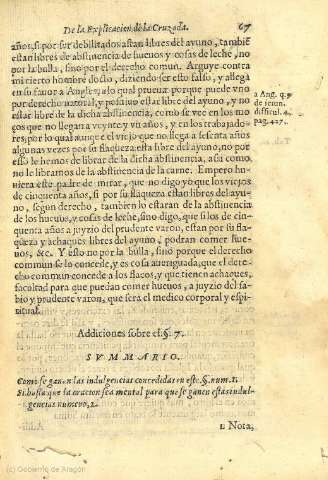 De la Explicacion de la Cruzada. 67
años, si por ser debilitados estan libres del ayuno, tambiē
estan libres de abstinencia de hueuos y cosas de leche, no
por la bulla, sino por el derecho comun. Arguye contra
mi cierto hombre docto, diziendo ser esto falso, y allega
en su fauor a Angles, a lo qual prueua: porque puede vno
por derecho natural, y positiuo estar libre del ayuno, y no
estar libre de la dicha abstinencia, como se vee en los mo
ços que no llegan a veynte y vn años, y en los trabajado-
res, por lo qual aunque el viejo que no llega a sesenta años
algunas vezes por su flaqueza esta libre del ayuno, no por
esso le hemos de librar de la dicha abstinencia, assi como
no le libramos de la abstinencia de la carne. Empero hu-
uiera este padre de mirar, que no digo yo que los viejos
de cinquenta años, si por su flaqueza estan libres del ayu-
no, segun derecho, tambien lo estaran de la abstinencia
de los hueuos, y cosas de leche, sino digo, que si los de cin-
quenta años a juyzio del prudente varon, estan por su fla
queza y achaques libres del ayuno, podran comer hue-
uos, &c. Y esto no por la bulla, sino porque el derecho
commun se lo concede, y es cosa aueriguada, que el dere-
cho commun concede a los flacos, y que tienen achaques,
facultad para que puedan comer hueuos, a juyzio del sa-
bio y prudente varon, que sera el medico corporal y espi-
ritual.
a Ang. q. 9
de ieiun.
difficul. 4.
pag. 427.
Addiciones sobre el §. 7.
SVMMARIO.
Como se ganen las indulgencias concedidas en este. §. num. 1.
Si basta que la oracion sea mental para que se ganen estas indul-
gencias numero, 2.
I Nota,
(c) Gobierno de Aragón